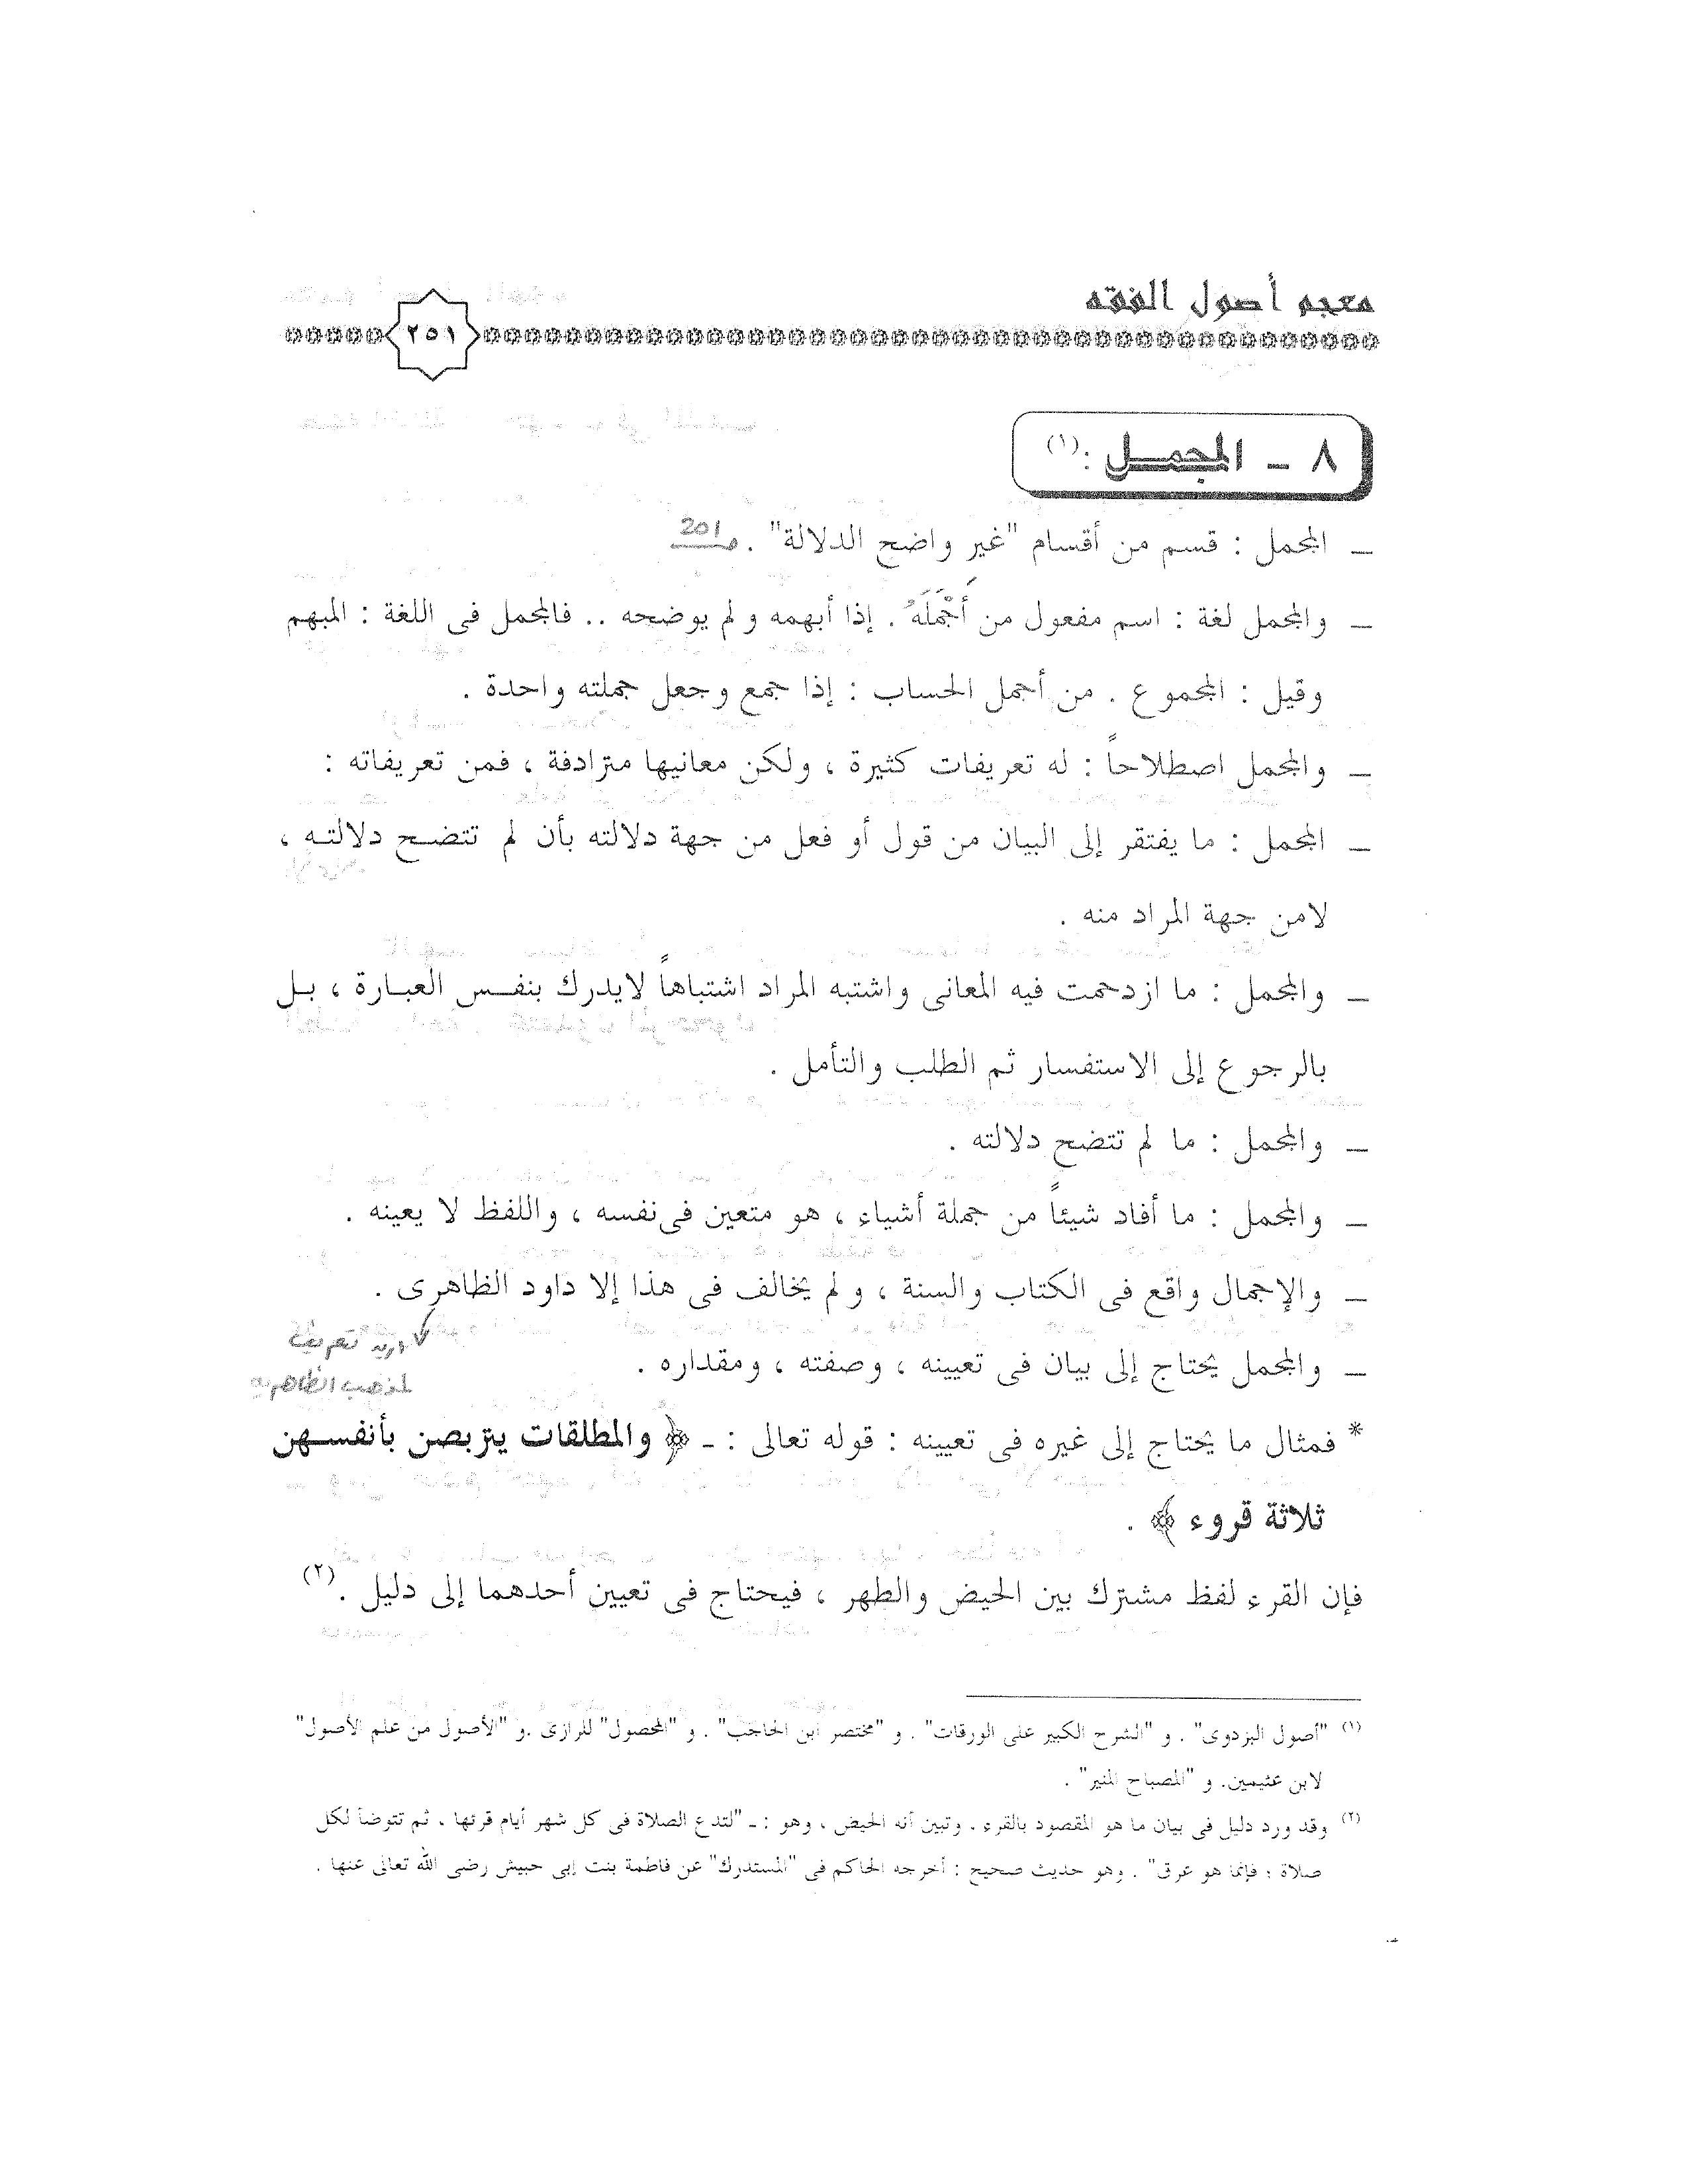 معجم أصول الفقه
٢٥١
٨ ــ المجمل : (١)
ــ المجمل : قسم من أقسام "غير واضح الدلالة" . ص 201
ــ والمجمل لغة : اسم مفعول من أَجْمَلَهُ . إذا أبهمه و لم يوضحه .. فالمجمل فى اللغة : المبهم
وقيل : المجموع . من أجمل الحساب : إذا جمع وجعل جملته واحدة .
ــ والمجمل اصطلاحاً : له تعريفات كثيرة ، ولكن معانيها مترادفة ، فمن تعريفاته :
ــ المجمل : ما يفتقر إلى البيان من قول أو فعل من جهة دلالته بأن لم تتضح دلالته ،
لامن جهة المراد منه .
ــ والمجمل : ما ازدحمت فيه المعانى واشتبه المراد اشتباهاً لايدرك بنفس العبارة ، بل
بالرجوع إلى الاستفسار ثم الطلب والتأمل .
ــ والمجمل : ما لم تتضح دلالته .
ــ والمجمل : ما أفاد شيئاً من جملة أشياء ، هو متعين فى نفسه ، واللفظ لا يعينه .
ــ والإجمال واقع فى الكتاب والسنة ، و لم يخالف فى هذا إلا داود الظاهرى .
اريد تعريف
لمذهب الظاهرية
ــ والمجمل يحتاج إلى بيان فى تعيينه ، وصفته ، ومقداره .
* فمثال ما يحتاج إلى غيره فى تعيينه : قوله تعالى : ـ ﴿ والمطلقات يتربصن بأنفسهن
ثلاثة قروء ﴾ .
فإن القرء لفظ مشترك بين الحيض والطهر ، فيحتاج فى تعيين أحدهما إلى دليل .(٢)
(١) "أصول البزدوى" . و "الشرح الكبير على الورقات" . و "مختصر ابن الحاجب" . و "المحصول" للرازى .و "الأصول من علم الأصول"
لابن عثيمين. و "المصباح المنير" .
(٢) وقد ورد دليل فى بيان ما هو المقصود بالقرء . وتبين أنه الحيض ، وهو : ـ "لتدع الصلاة فى كل شهر أيام قرئها ، ثم تتوضأ لكل
صلاة ؛ فإنما هو عرق" . وهو حديث صحيح : أخرجه الحاكم فى "المستدرك" عن فاطمة بنت إبى حبيش رضى الله تعالى عنها .